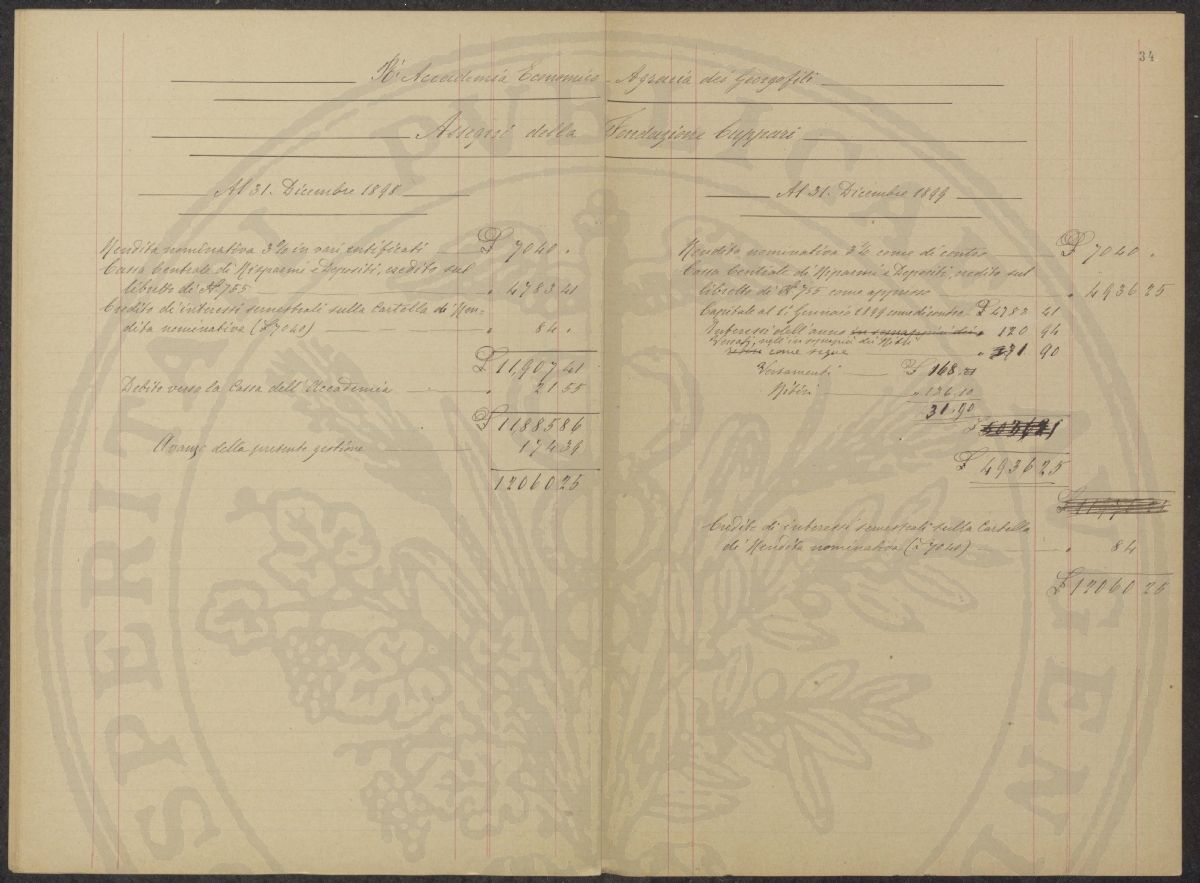 34
R. Accademia Economico-Agraria dei Georgofili
Assegni della Fondazione Cuppari
Al 31. Dicembre 1898
Rendita nominativa 3% in vari certificati £ 7040 "
Cassa Centrale di Risparmi e Depositi, credito sul
libretto di N° 755 " 4783 41
Credito di interessi semestrali sulla Cartella di Ren-
dita nominativa (£ 7040) " 84 "
£ 11,907 41
Debito verso la Cassa dell'Accademia " 21 55
£ 11885 86
Avanzo della presente gestione 174 39
12060 25
Al 31. Dicembre 1899
Rendita nominativa 3% come di contro £ 7040 "
Cassa Centrale di Risparmi e Depositi, credito sul
libretto di N° 755 come appresso " 4936 25
Capitale al 1° Gennaio 1899 come di contro £ 4783 41
Interessi dell'anno " 120 94
Versati, negli in dei Ritiri
come segue " 31 90
Versamenti £ 168.
Ritiri " 136.10
31.90
£
£ 4936 25
£
Credito di interessi semestrali sulla Cartella
di Rendita nominativa (£ 7040) " 84
£ 12060 25
PUBLICAE
PROSPERITATI
AUGENDAE